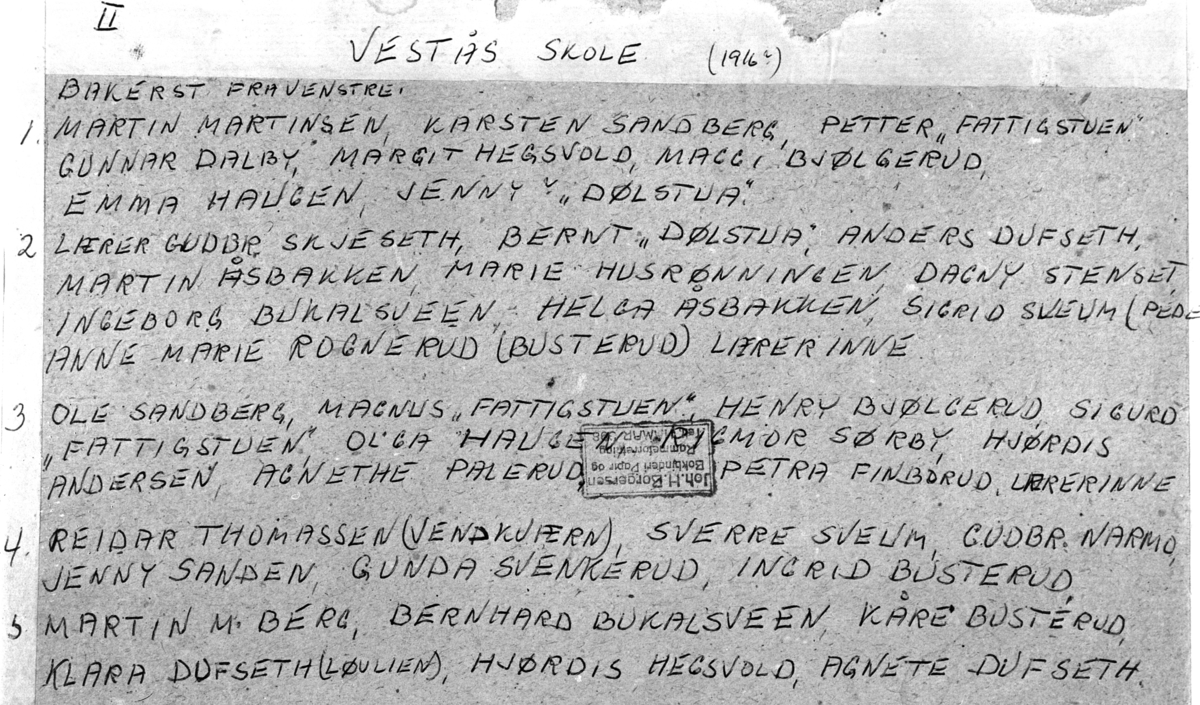 II
VESTÅS SKOLE (1916?)
BAKERST FRA VENSTRE:
1. MARTIN MARTINSEN, KARSTEN SANDBERG, PETTER „FATTIGSTUEN"
GUNNAR DALBY, MARGIT HEGSVOLD, MAGGI BJØLGERUD,
EMMA HAUGEN, JENNY „DØLSTUA".
2 LÆRER GUDBR. SKJESETH, BERNT „DØLSTUA", ANDERS DUFSETH,
MARTIN ÅSBAKKEN, MARIE HUSRØNNINGEN, DAGNY STENSET,
INGEBORG BUKALSVEEN, HELGA ÅSBAKKEN, SIGRID SVEUM (PEDE
ANNE MARIE ROGNERUD (BUSTERUD) LÆRERINNE
3 OLE SANDBERG, MAGNUS „FATTIGSTUEN", HENRY BJØLGERUD, SIGURD
„FATTIGSTUEN", OLGA HAUGEN, SØRBY, HJØRDIS
ANDERSEN, AGNETHE PALERUD, PETRA FINBORUD, LÆRERINNE
Joh. H. Borgersen
Bokbinderi Papir og
Rammeforretning
4. REIDAR THOMASSEN (VENDKVÆRN), SVERRE SVEUM, GUDBR. NARMO,
JENNY SANDEN, GUNDA SVENKERUD, INGRID BUSTERUD,
5 MARTIN M. BERG, BERNHARD BUKALSVEEN, KÅRE BUSTERUD,
KLARA DUFSETH (LØULIEN), HJØRDIS HEGSVOLD, AGNETE DUFSETH.